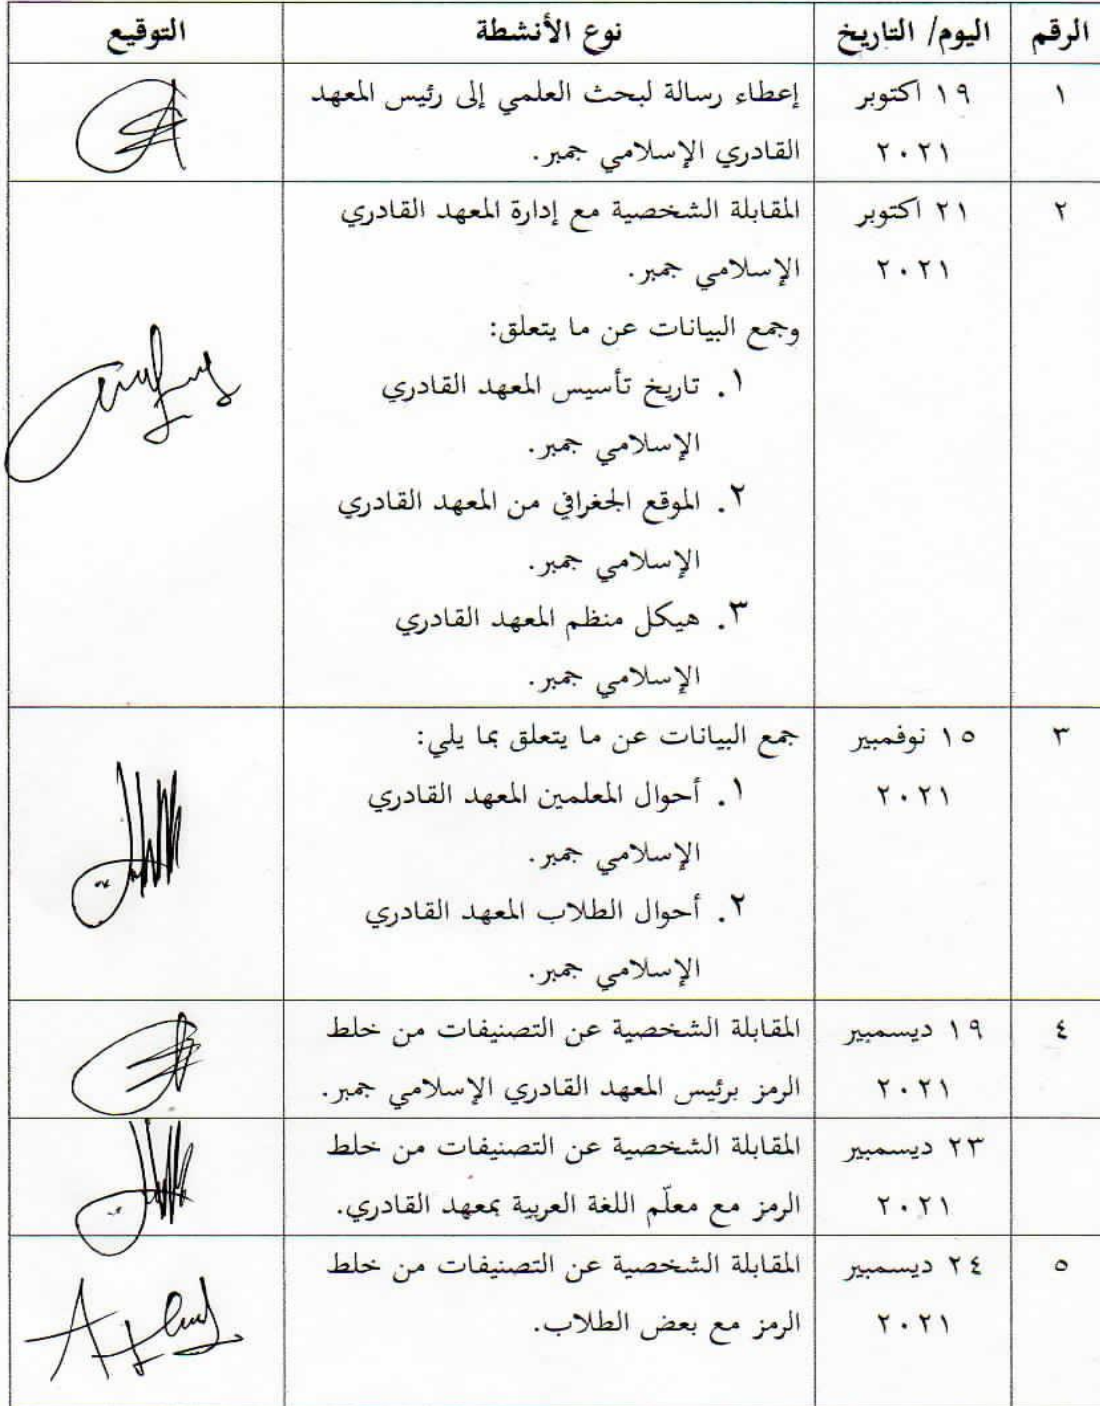 الرقم اليوم/ التاريخ نوع الأنشطة التوقيع
١ ١٩ اكتوبر إعطاء رسالة لبحث العلمي إلى رئيس المعهد
٢٠٢١ القادري الإسلامي جمبر.
٢ ٢١ اكتوبر المقابلة الشخصية مع إدارة المعهد القادري
٢٠٢١ الإسلامي جمبر.
وجمع البيانات عن ما يتعلق:
١. تاريخ تأسيس المعهد القادري
الإسلامي جمبر.
٢. الموقع الجغرافي من المعهد القادري
الإسلامي جمبر.
٣. هيكل منظم المعهد القادري
الإسلامي جمبر.
٣ ١٥ نوفمبير جمع البيانات عن ما يتعلق بما يلي:
٢٠٢١ ١. أحوال المعلمين المعهد القادري
الإسلامي جمبر.
٢. أحوال الطلاب المعهد القادري
الإسلامي جمبر.
٤ ١٩ ديسمبير المقابلة الشخصية عن التصنيفات من خلط
٢٠٢١ الرمز برئيس المعهد القادري الإسلامي جمبر.
٢٣ ديسمبير المقابلة الشخصية عن التصنيفات من خلط
٢٠٢١ الرمز مع معلّم اللغة العربية بمعهد القادري.
٥ ٢٤ ديسمبير المقابلة الشخصية عن التصنيفات من خلط
٢٠٢١ الرمز مع بعض الطلاب.